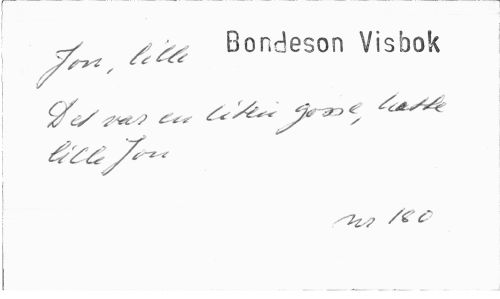 Jon, lille Bondeson Visbok
Det var en liten gosse, hette
lille Jon
nr 180